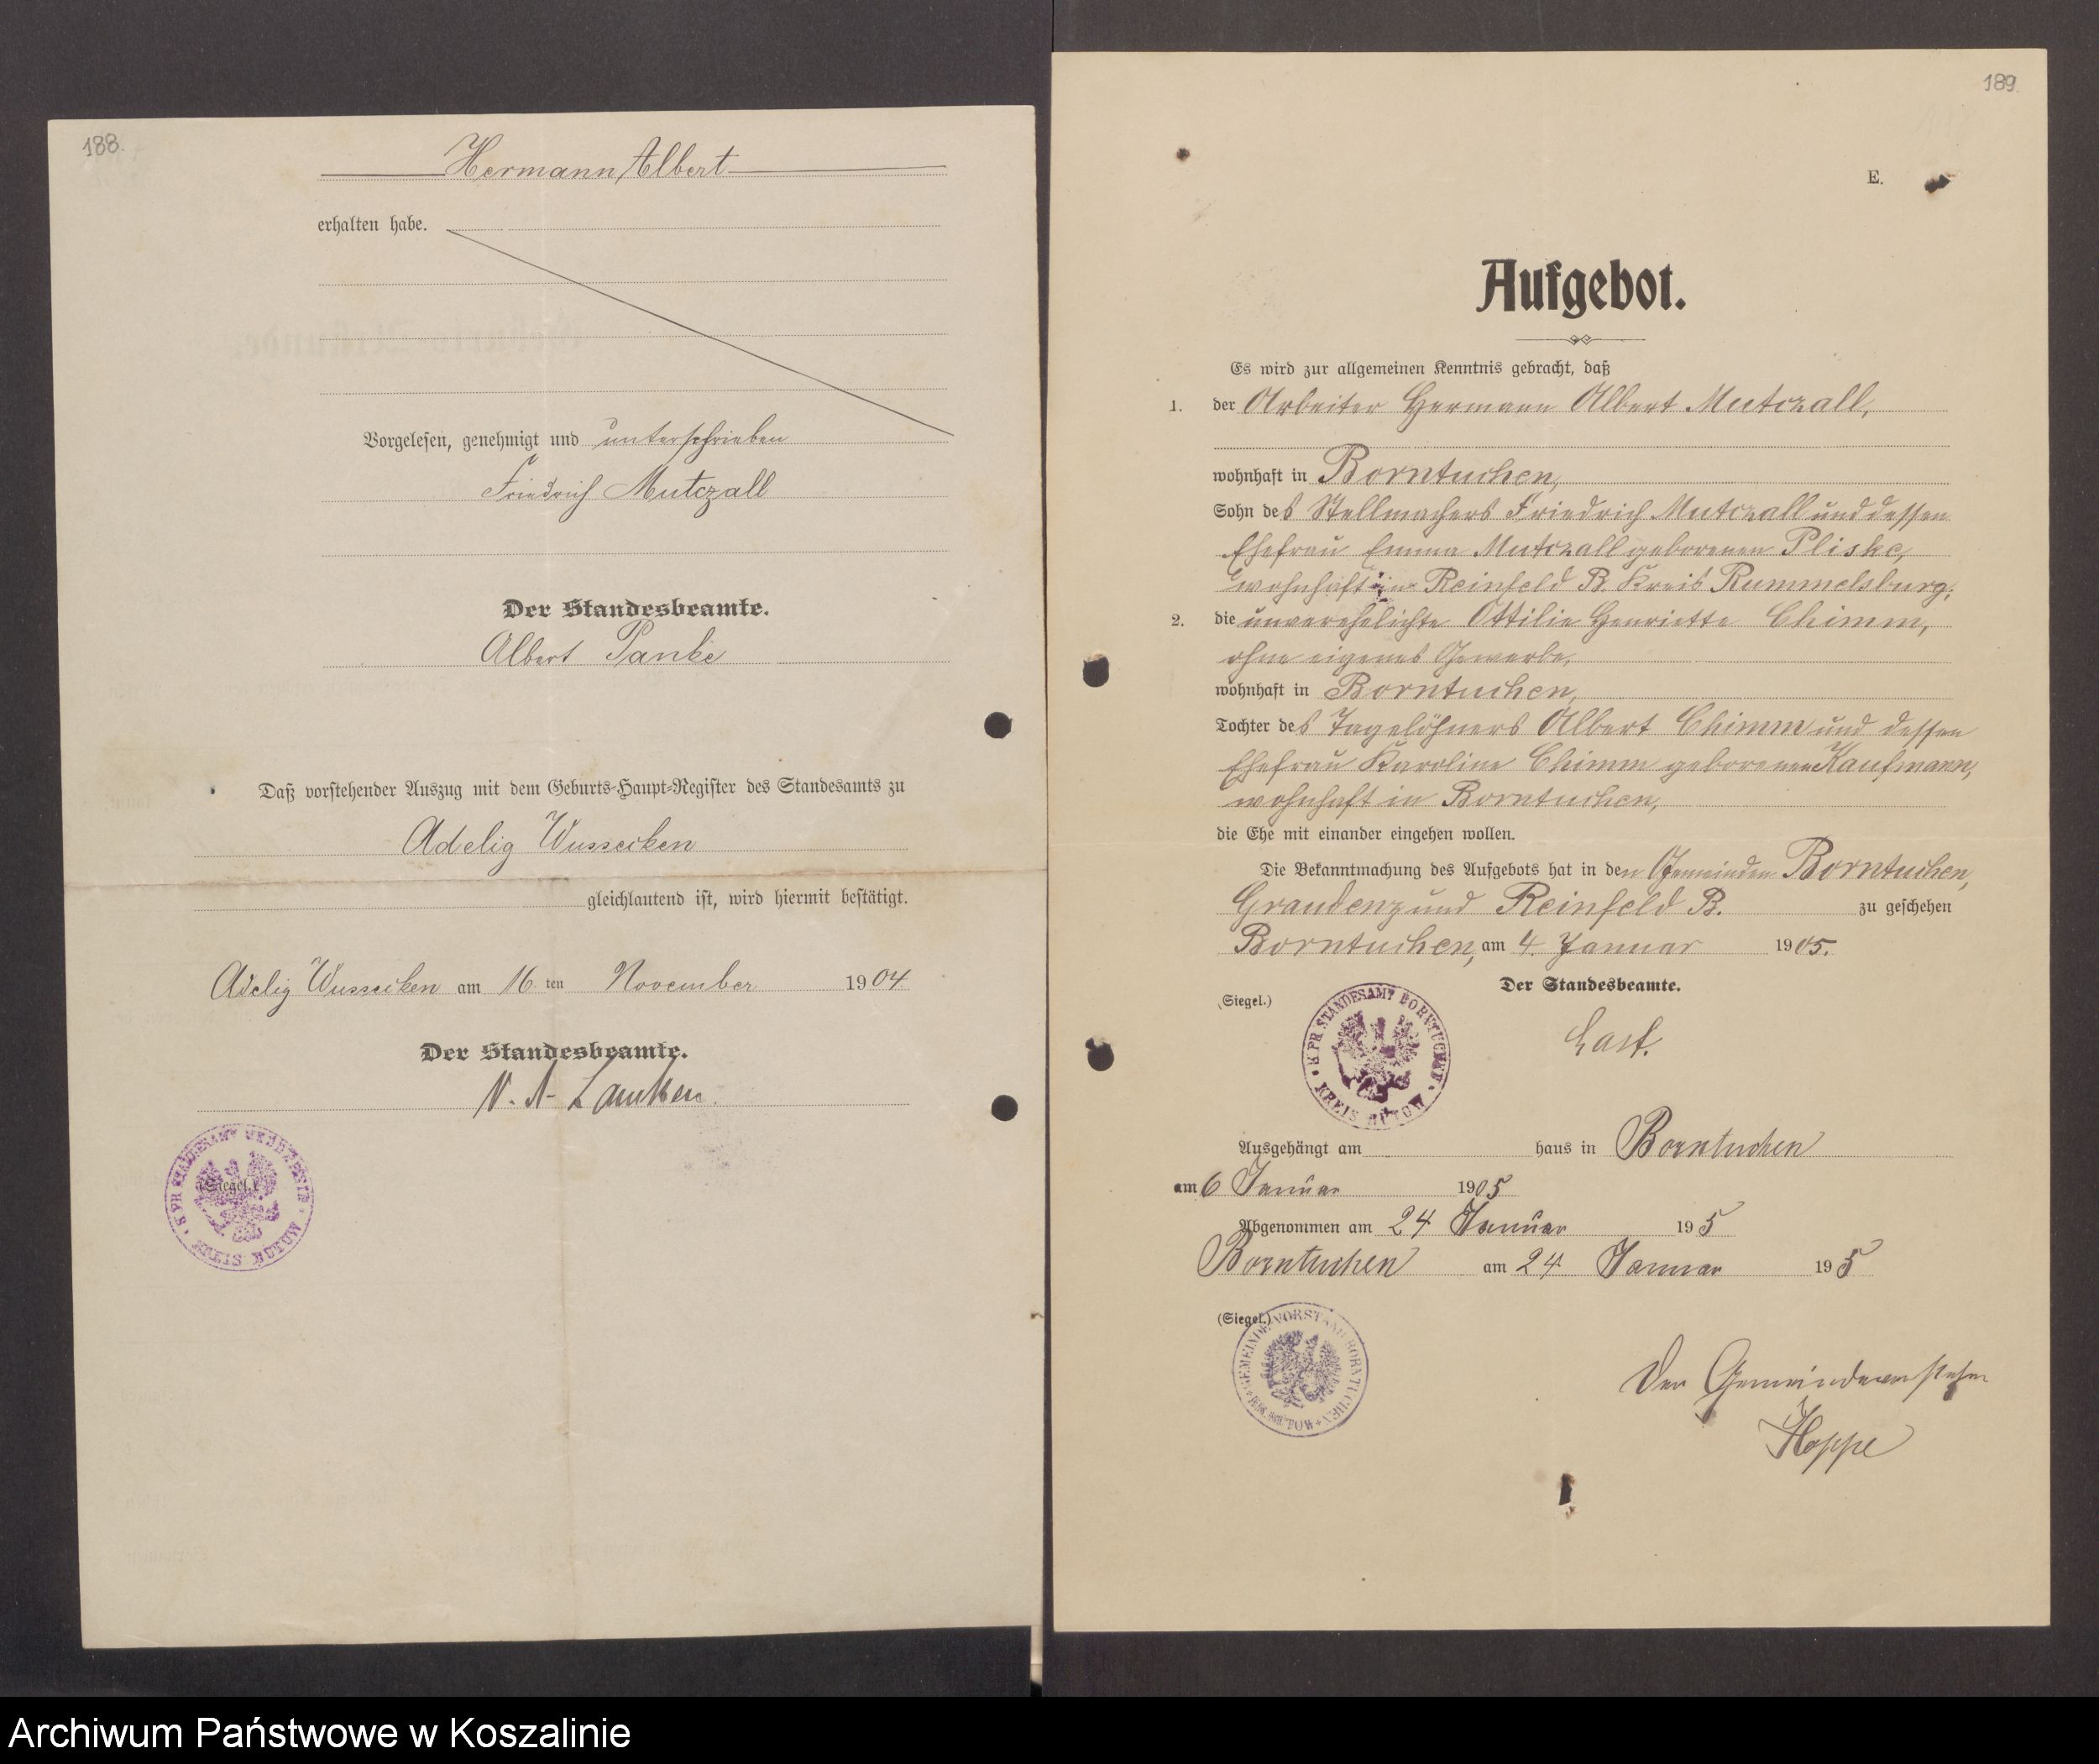 188.
Hermann Albert
erhalten habe.
Vorgelesen, genehmigt und unterschrieben
Friedrich Mutczall
Der Standesbeamte.
Albert Panke
Daß vorstehender Auszug mit dem Geburts-Haupt-Register des Standesamts zu
Adelig Wussecken
gleichlautend ist, wird hiermit bestätigt.
Adelig Wussecken am 16. ten November 1904
Der Standesbeamte.
(Siegel.)
KREIS BÜTOW
189.
E.
Aufgebot.
Es wird zur allgemeinen Kenntnis gebracht, daß
1. der Arbeiter Hermann Albert Mutczall,
wohnhaft in Borntuchen,
Sohn des Stellmachers Friedrich Mutczall und dessen
Ehefrau Emma Mutczall geborenen Pliske,
wohnhaft in Reinfeld B. Kreis Rummelsburg;
2. die unverehelichte Ottilie Henriette Chimm,
ohne eigenes Gewerbe,
wohnhaft in Borntuchen,
Tochter des Tagelöhners Albert Chimm und dessen
Ehefrau Karoline Chimm geborenen Kaufmann,
wohnhaft in Borntuchen,
die Ehe mit einander eingehen wollen.
Die Bekanntmachung des Aufgebots hat in den Gemeinden Borntuchen,
Graudenz und Reinfeld B. zu geschehen
Borntuchen, am 4. Januar 1905.
Der Standesbeamte.
(Siegel.)
K. PR. STANDESAMT BORNTUCHEN
KREIS BÜTOW
Last.
Ausgehängt am haus in Borntuchen
am 6 Januar 1905
Abgenommen am 24 Januar 19 5
Borntuchen am 24 Januar 19 5
(Siegel.)
GEMEINDE VORSTAND BORNTUCHEN
Der Gemeindevorsteher
Hoppe
Archiwum Państwowe w Koszalinie